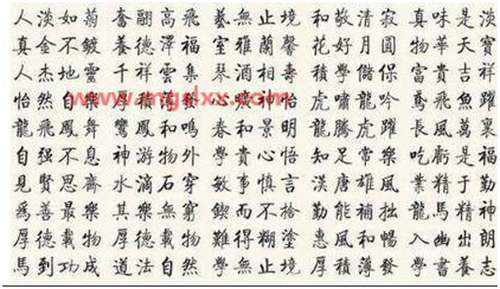 人淡如菊 奮翮高飛 藝無止境 和敬清寂 真味是淡
真金不鍍 養德澤福 室雅蘭馨 花好月圓 物華天寶
人杰地靈 千祥雲集 琴酒相壽 積學儲保 富貴吉祥
怡然自樂 神怡 虎嘯龍吟 鳶飛魚躍
龍飛鳳舞 鸞鳳和鳴 春和景明 龍騰虎躍 長風萬裏
自强不息 神游物外 學貴心悟 知足常樂 吃虧是福
見賢思齊 水滴石穿 敏事慎言 漢唐雄風 業精于勤
爲善最樂 其樂無窮 鍥而不捨 勤能補拙 龍馬精神
厚德載物 厚德載物 難得糊塗 惠風和暢 入幽出朗
馬到功成 道法自然 學無止境 厚積薄發 學書養志